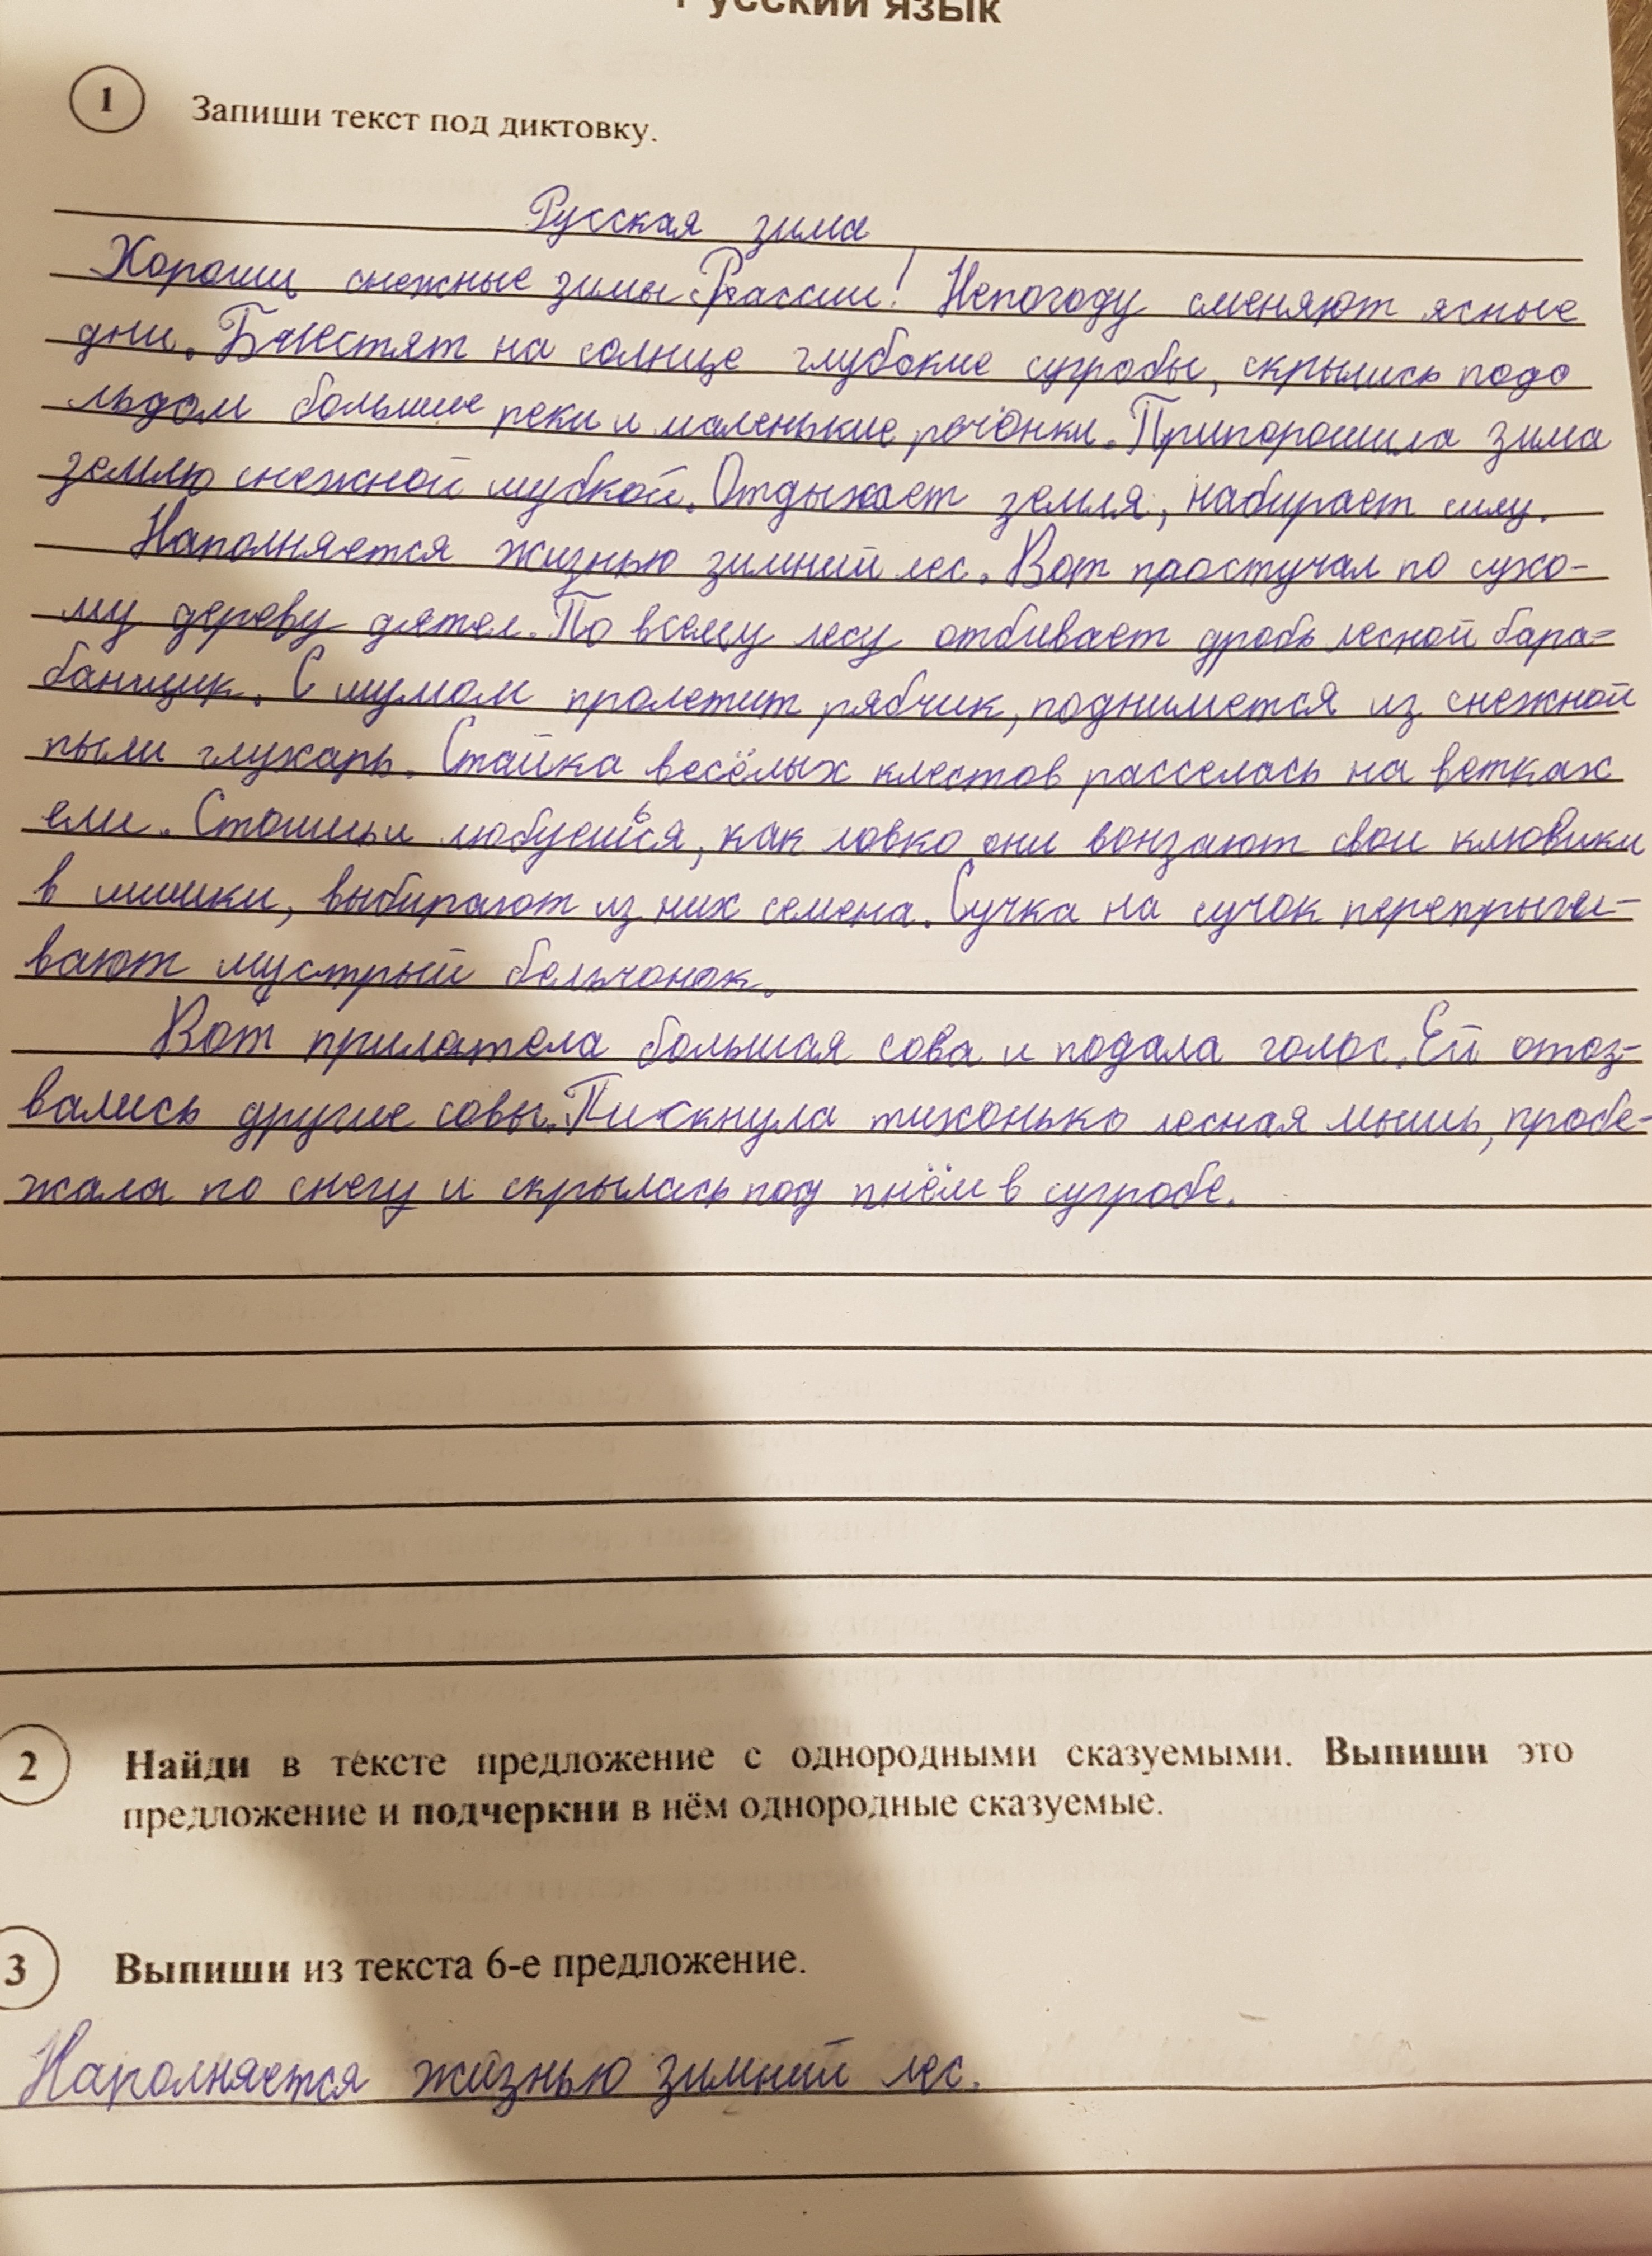 Русский язык
1 Запиши текст под диктовку.
Русская зима
Хороши снежные зимы России! Непогоду сменяют ясные
дни. Блестят на солнце глубокие сугробы, скрылись подо
льдом большие реки и маленькие речонки. Припорошила зима
землю снежной шубкой. Отдыхает земля, набирает силу.
Наполняется жизнью зимний лес. Вот простучал по сухо-
му дереву дятел. По всему лесу отбивает дробь лесной бара-
банщик. С шумом пролетит рябчик, поднимется из снежной
пыли глухарь. Стайка весёлых клестов расселась на ветках
ели. Стоишь и любуешься, как ловко они вонзают свои клювики
в шишки, выбирают из них семена. Сучка на сучок перепрыги-
вают шустрый бельчонок.
Вот прилетела большая сова и подала голос. Ей отоз-
вались другие совы. Пискнула тихонько лесная мышь, пробе-
жала по снегу и скрылась под пнём в сугробе.
2 Найди в тексте предложение с однородными сказуемыми. Выпиши это
предложение и подчеркни в нём однородные сказуемые.
3 Выпиши из текста 6-е предложение.
Наполняется жизнью зимний лес.